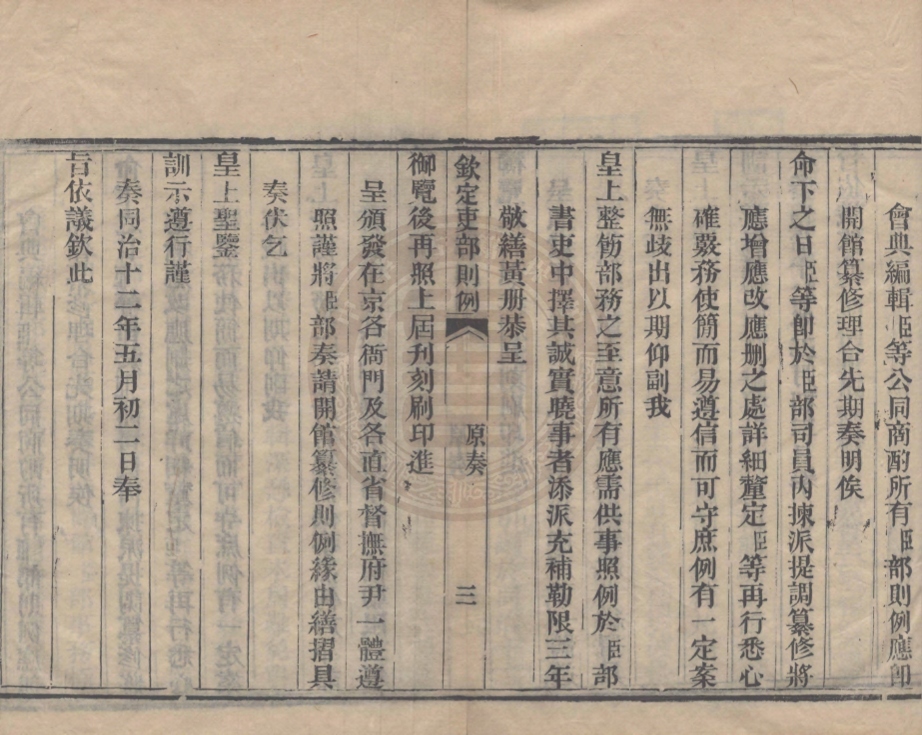 會典編輯臣等公同商酌所有臣部則例應卽
開館纂修理合先期奏明俟
命下之日臣等卽於臣部司員內揀派提調纂修將
應增應改應删之處詳細釐定臣等再行悉心
確覈務使簡而易遵信而可守庶例有一定案
無歧出以期仰副我
皇上整飭部務之至意所有應需供事照例於臣部
書吏中擇其誠實曉事者添派充補勒限三年
敬繕黃册恭呈
欽定吏部則例 原奏 三
御覽後再照上屆刊刻刷印進
呈頒發在京各衙門及各直省督撫府尹一體遵
照謹將臣部奏請開館纂修則例緣由繕摺具
奏伏乞
皇上聖鑒
訓示遵行謹
奏同治十二年五月初二日奉
旨依議欽此